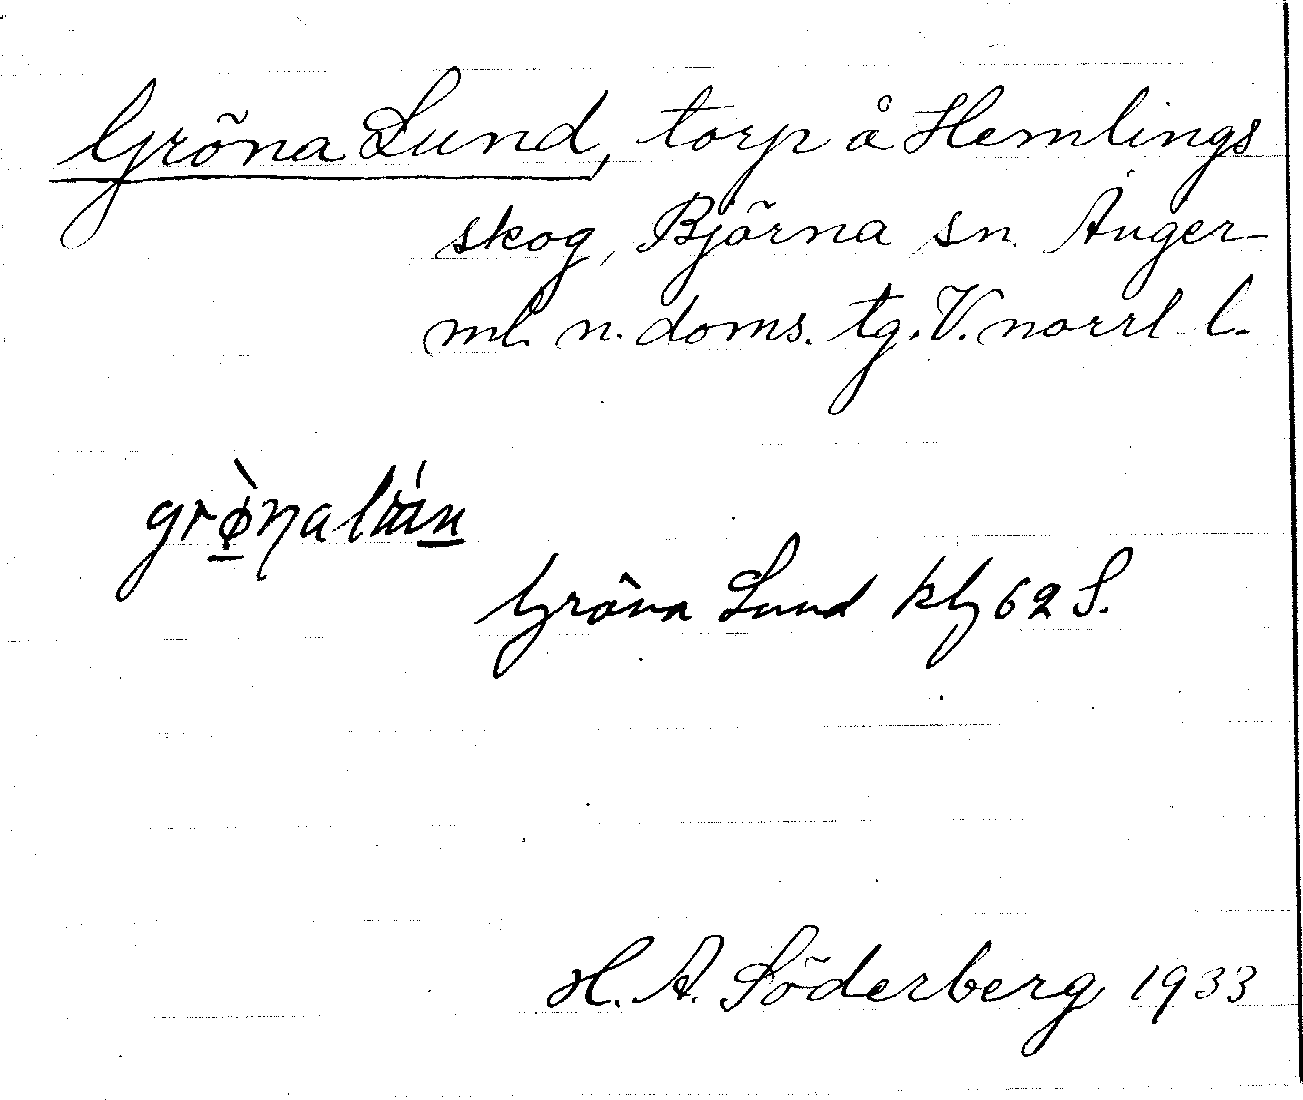 Gröna Lund, torp å Hemlings
skog, Björna sn. Ånger-
ml. n. doms. tg. V. norrl l.
Gröna Lund kbg 62 S.
H. A. Söderberg 1933